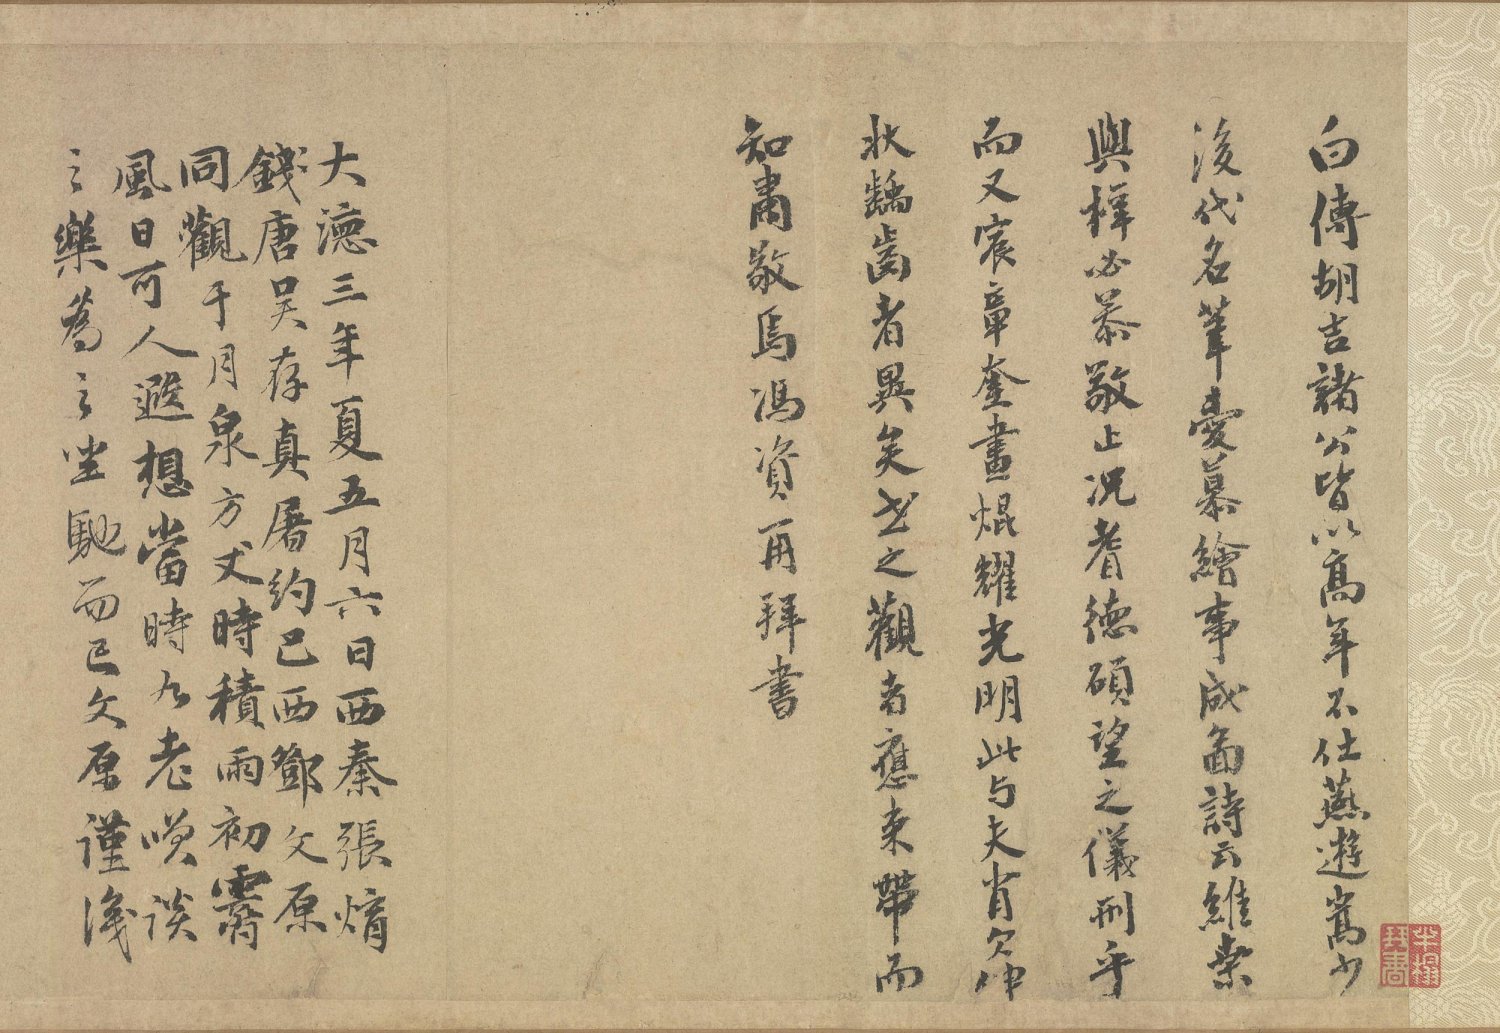 白傅胡吉諸公皆以髙年不仕燕遊嵩少
後代名輩愛慕繪事成啚詩云維桒
與梓必恭敬止況耆德碩望之儀刑乎
而又宸章奎畫焜耀光明此与夫肖欠伸
狀齲齒者異矣哉之觀者應束帶而
知肅敬焉馮資再拜書
大德三年夏五月六日西秦張焴
錢唐吴存真屠約巴西鄧文原
同觀于月泉方丈時積雨初霽
風日可人遐想當時九老咲談
之樂為之坐馳而已文原謹識
半榻
琴書